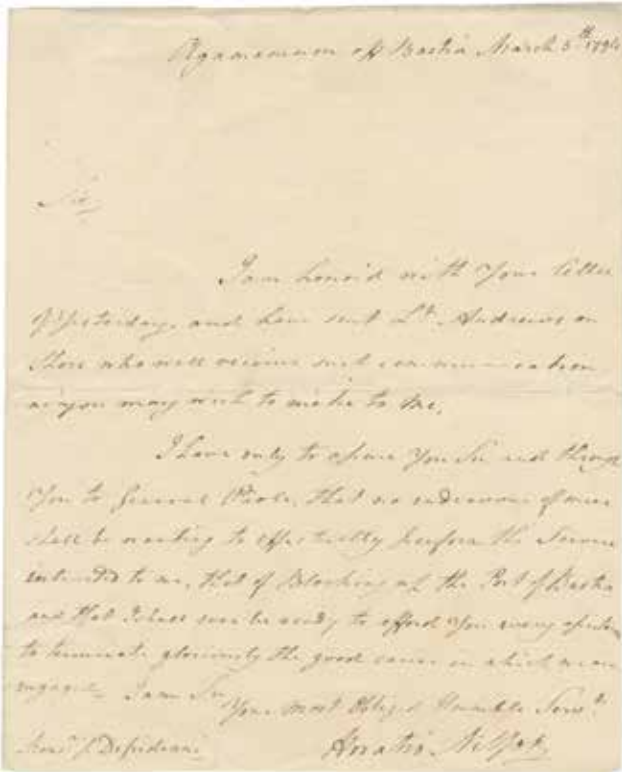 Agamemnon off Bastia March 5th 1794
Sir
I am honor'd with your letter
of yesterday, and have sent Lt. Andrews on
Shore who will receive such communication
as you may wish to make to me.
I have only to assure you Sir and through
you to General Paoli, that no endeavours of mine
shall be wanting to effectually perform the Service
intrusted to me, that of Blocking up the Port of Bastia
and that I shall ever be ready to afford you every assistance
to terminate gloriously the good cause in which we are
engaged. I am Sir
Your most Obliged Humble Servt.
Horatio Nelson